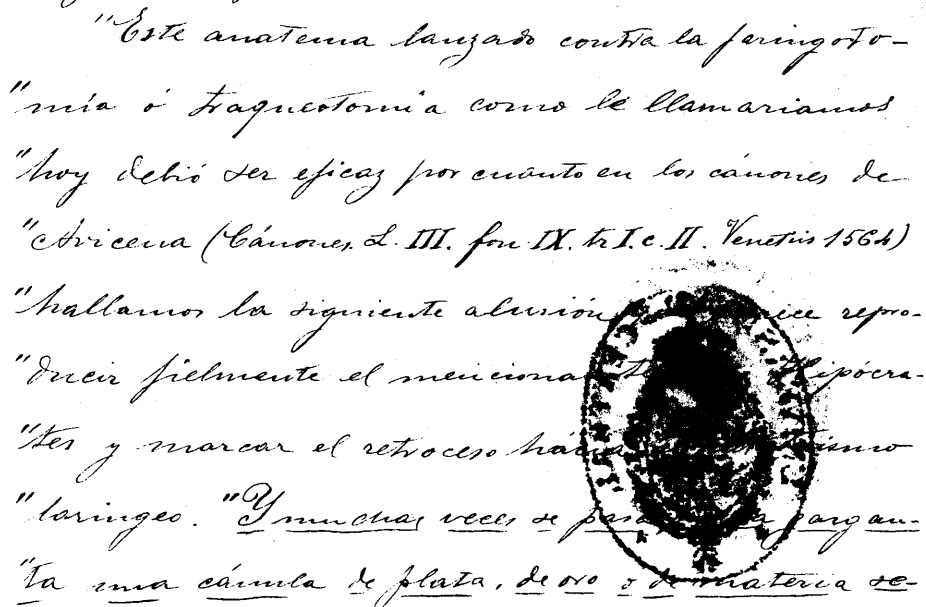 "Este anatema lanzado contra la faringoto-
"mía ó traqueotomia como le llamariamos
"hoy debió ser eficaz por cuanto en los cánones de
"Avicena (Cánones, L. III. fen IX. tr I. c. II. Venetiis 1564)
"hallamos la siguiente alusión repro-
"ducir fielmente el Hipócra-
"tes y marcar el retroceso hácia
"laringeo. "Y muchas veces se gargan-
"ta una cánula de plata, de oro o de materia se-